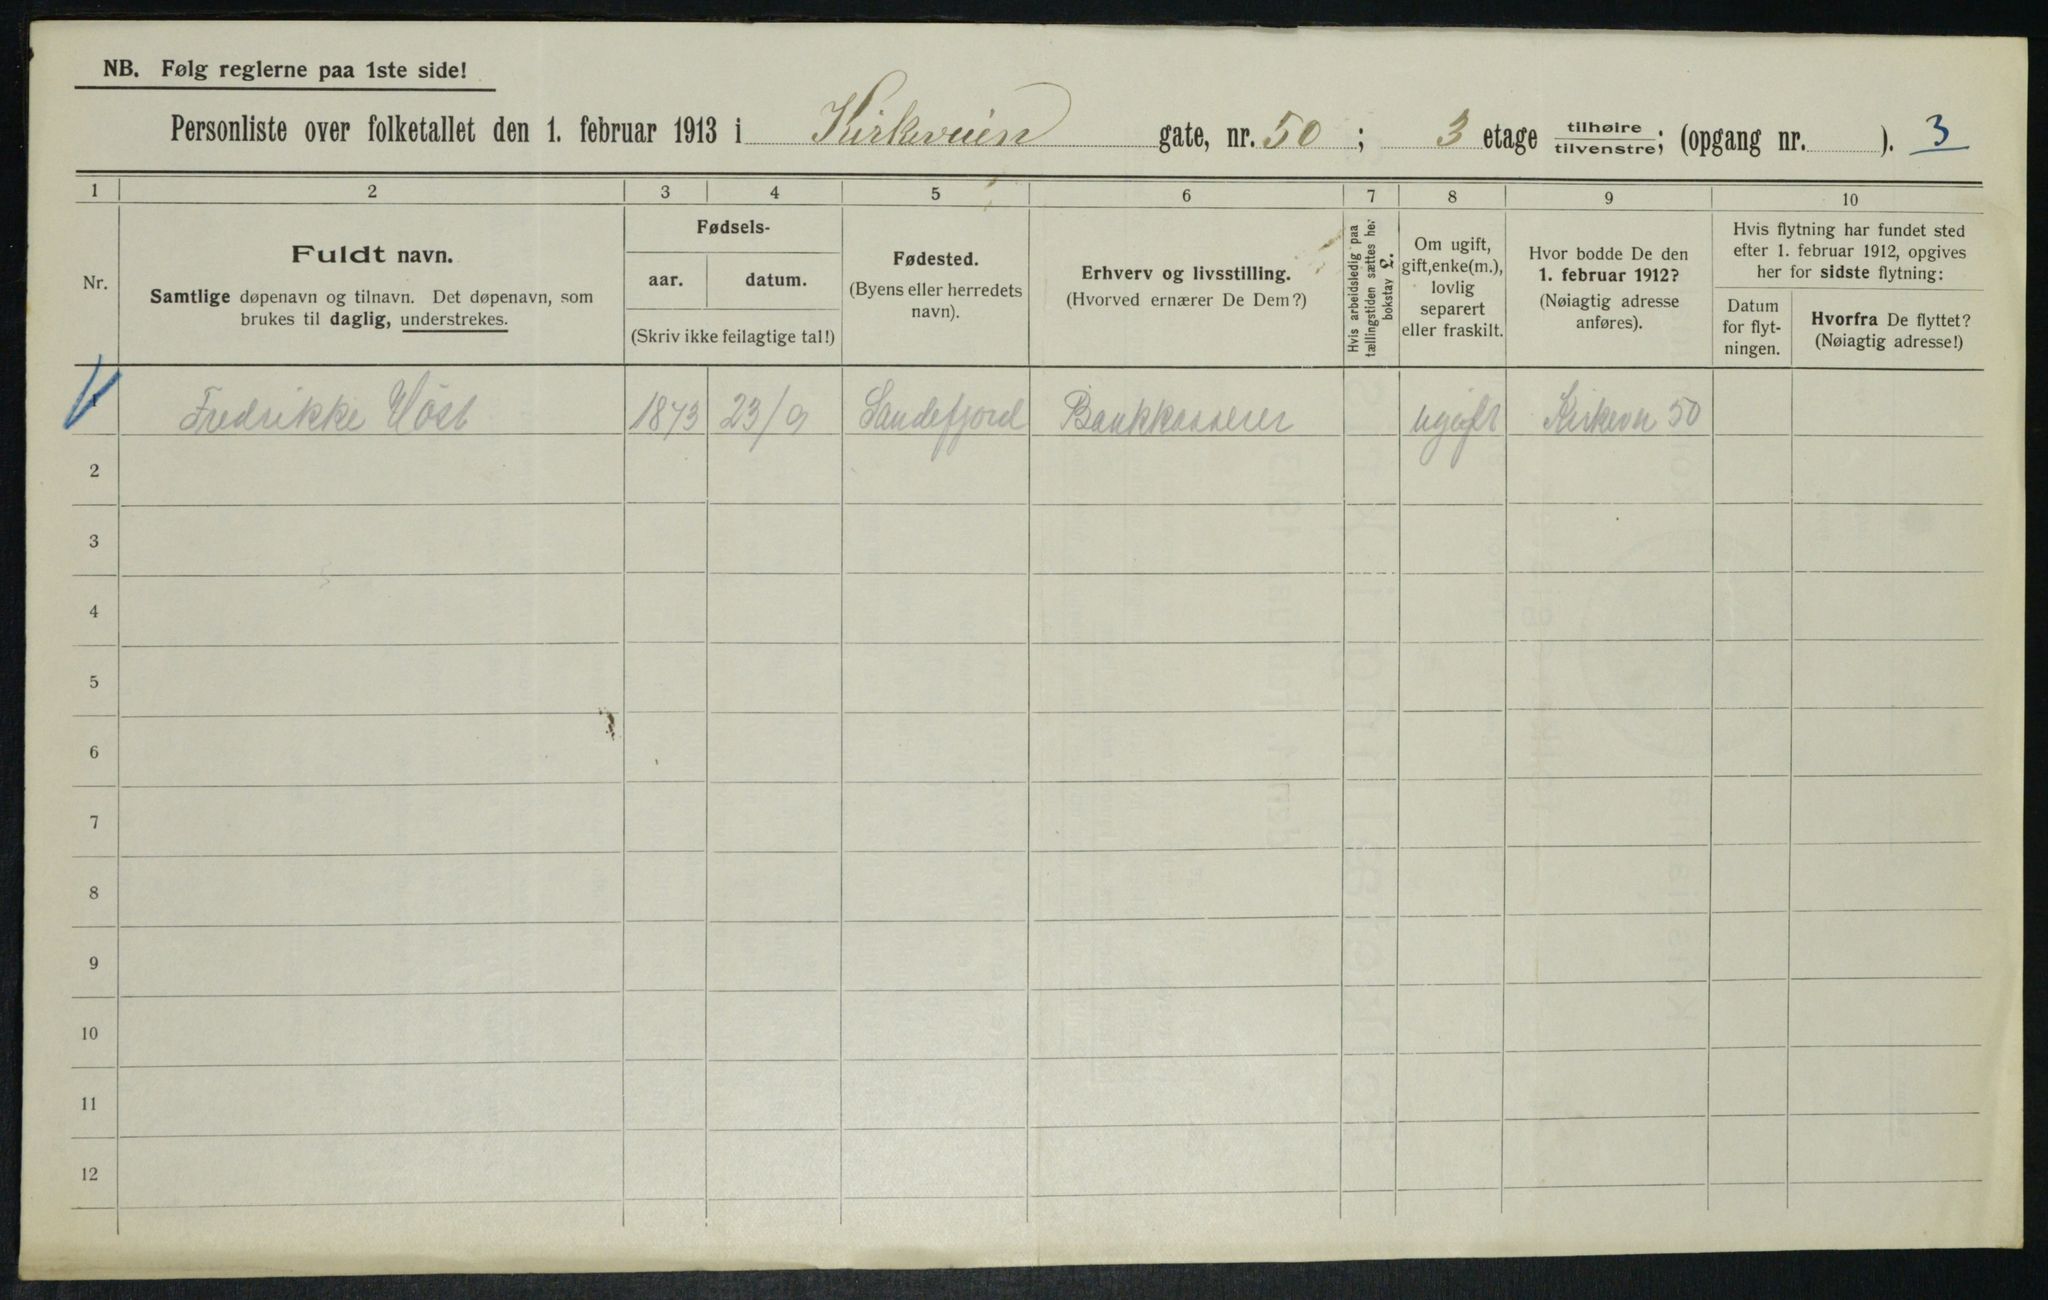 NB. Følg reglerne paa 1ste side!
Personliste over folketallet den 1. februar 1913 i Kirkeveien gate, nr. 50 ; 3 etage tilhøire / tilvenstre; (opgang nr. ). 3
1 2 3 4 5 6 7 8 9 10
Nr.
Fuldt navn.
Samtlige døpenavn og tilnavn. Det døpenavn, som
brukes til daglig, understrekes.
Fødsels-
aar. datum.
(Skriv ikke feilagtige tal!)
Fødested.
(Byens eller herredets
navn).
Erhverv og livsstilling.
(Hvorved ernærer De Dem?)
Hvis arbeidsledig paa
tællingstiden sættes her
bokstav L.
Om ugift,
gift, enke(m.),
lovlig
separert
eller fraskilt.
Hvor bodde De den
1. februar 1912?
(Nøiagtig adresse
anføres).
Hvis flytning har fundet sted
efter 1. februar 1912, opgives
her for sidste flytning:
Datum
for flyt-
ningen.
Hvorfra De flyttet?
(Nøiagtig adresse!)
1 Fredrikke Höst 1873 23/9 Sandefjord Bankkasserer ugift Kirkevn 50
2
3
4
5
6
7
8
9
10
11
12